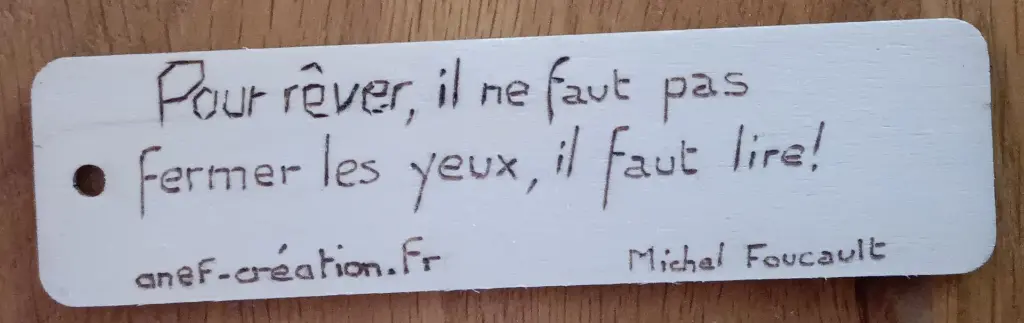 Pour rêver, il ne faut pas
fermer les yeux, il faut lire!
anef-création.fr
Michel Foucault